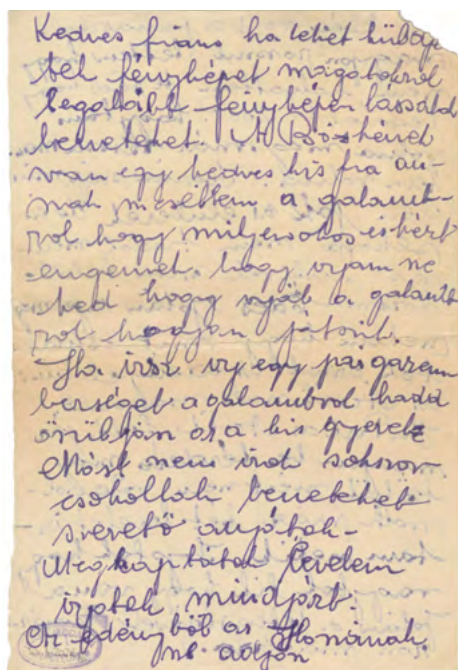 Kedves fiam ha lehet küldje
tek fényképet magatokrol
legalább fényképen lássalak
beneteket. A Böskének
van egy kedves kis fia an-
nak meséltem a galamb-
rol hogy milyen okos és kért
engemet hogy irjam ne
ked hogy irjál a galamb
rol hogyan játszik.
Ha irsz irj egy pár gazem
berséget a galambrol hadd
örüljön az a kis gyerek
Most nem irok sokszor
csokollak beneteket
szerető anyátok-
Megkaptátok levelem
irjatok mindjárt.
Az edényböl az Ilonának
ne adjon